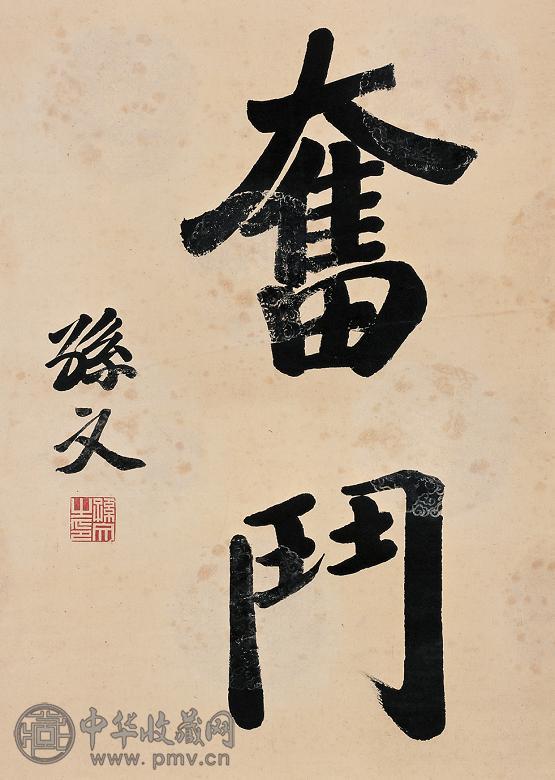 奮鬥
孫文
孫文之印
中华收藏网
www.pmv.cn